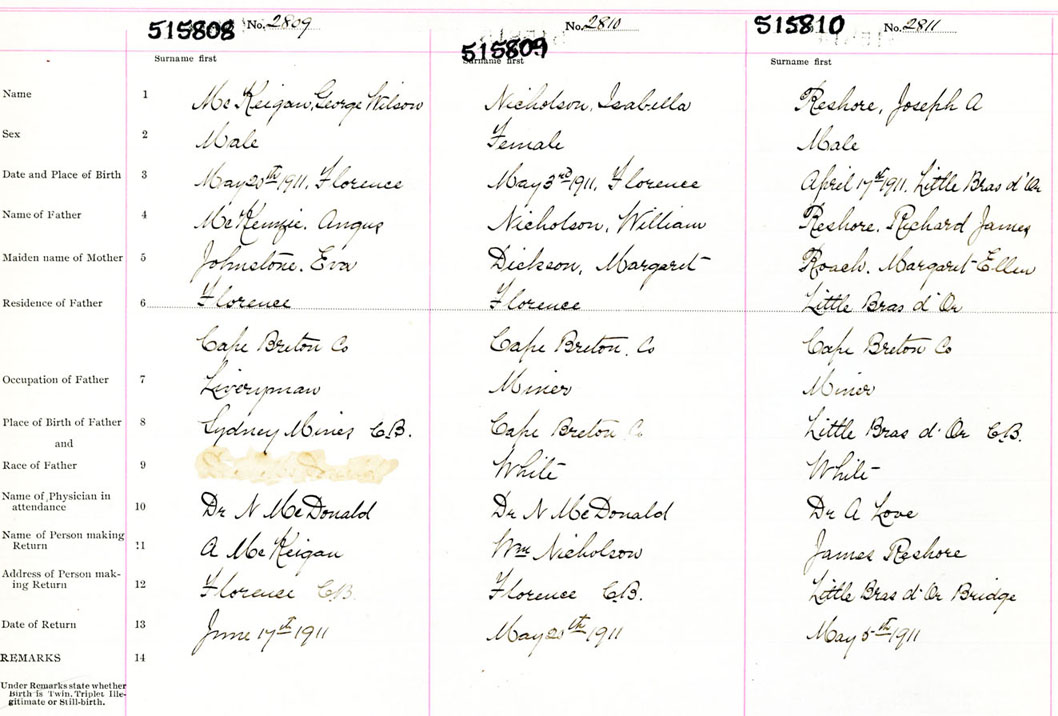 515808 No. 2809 515809 No. 2810 515810 No. 2811
Surname first Surname first Surname first
Name 1 McKeigan, George Wilson Nicholson, Isabella Reshore, Joseph A
Sex 2 Male Female Male
Date and Place of Birth 3 May 20th 1911, Florence May 3rd 1911, Florence April 17th 1911, Little Bras d'Or
Name of Father 4 McKenzie, Angus Nicholson, William Reshore, Richard James
Maiden name of Mother 5 Johnstone, Eva Dickson, Margaret Roach, Margaret Ellen
Residence of Father 6 Florence Florence Little Bras d'Or
Cape Breton Co Cape Breton, Co Cape Breton Co
Occupation of Father 7 Liveryman Miner Miner
Place of Birth of Father 8 Sydney Mines C.B. Cape Breton Co Little Bras d'Or C.B.
and
Race of Father 9 White White
Name of Physician in
attendance 10 Dr N McDonald Dr N McDonald Dr A Love
Name of Person making
Return 11 A McKeigan Wm Nicholson James Reshore
Address of Person mak-
ing Return 12 Florence C.B. Florence C.B. Little Bras d'Or Bridge
Date of Return 13 June 17th 1911 May 20th 1911 May 5th 1911
REMARKS 14
Under Remarks state whether
Birth is Twin, Triplet Ille-
gitimate or Still-birth.